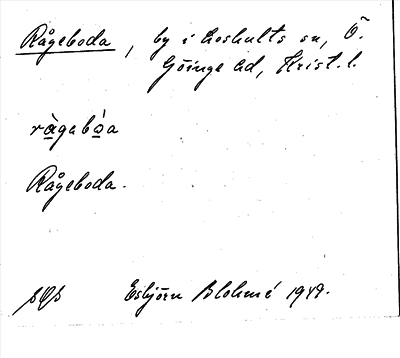 Rågeboda, by i Loshults sn, Ö.
Göinge hd, Krist. l.
Rågeboda.
Esbjörn Blohmé 1949.